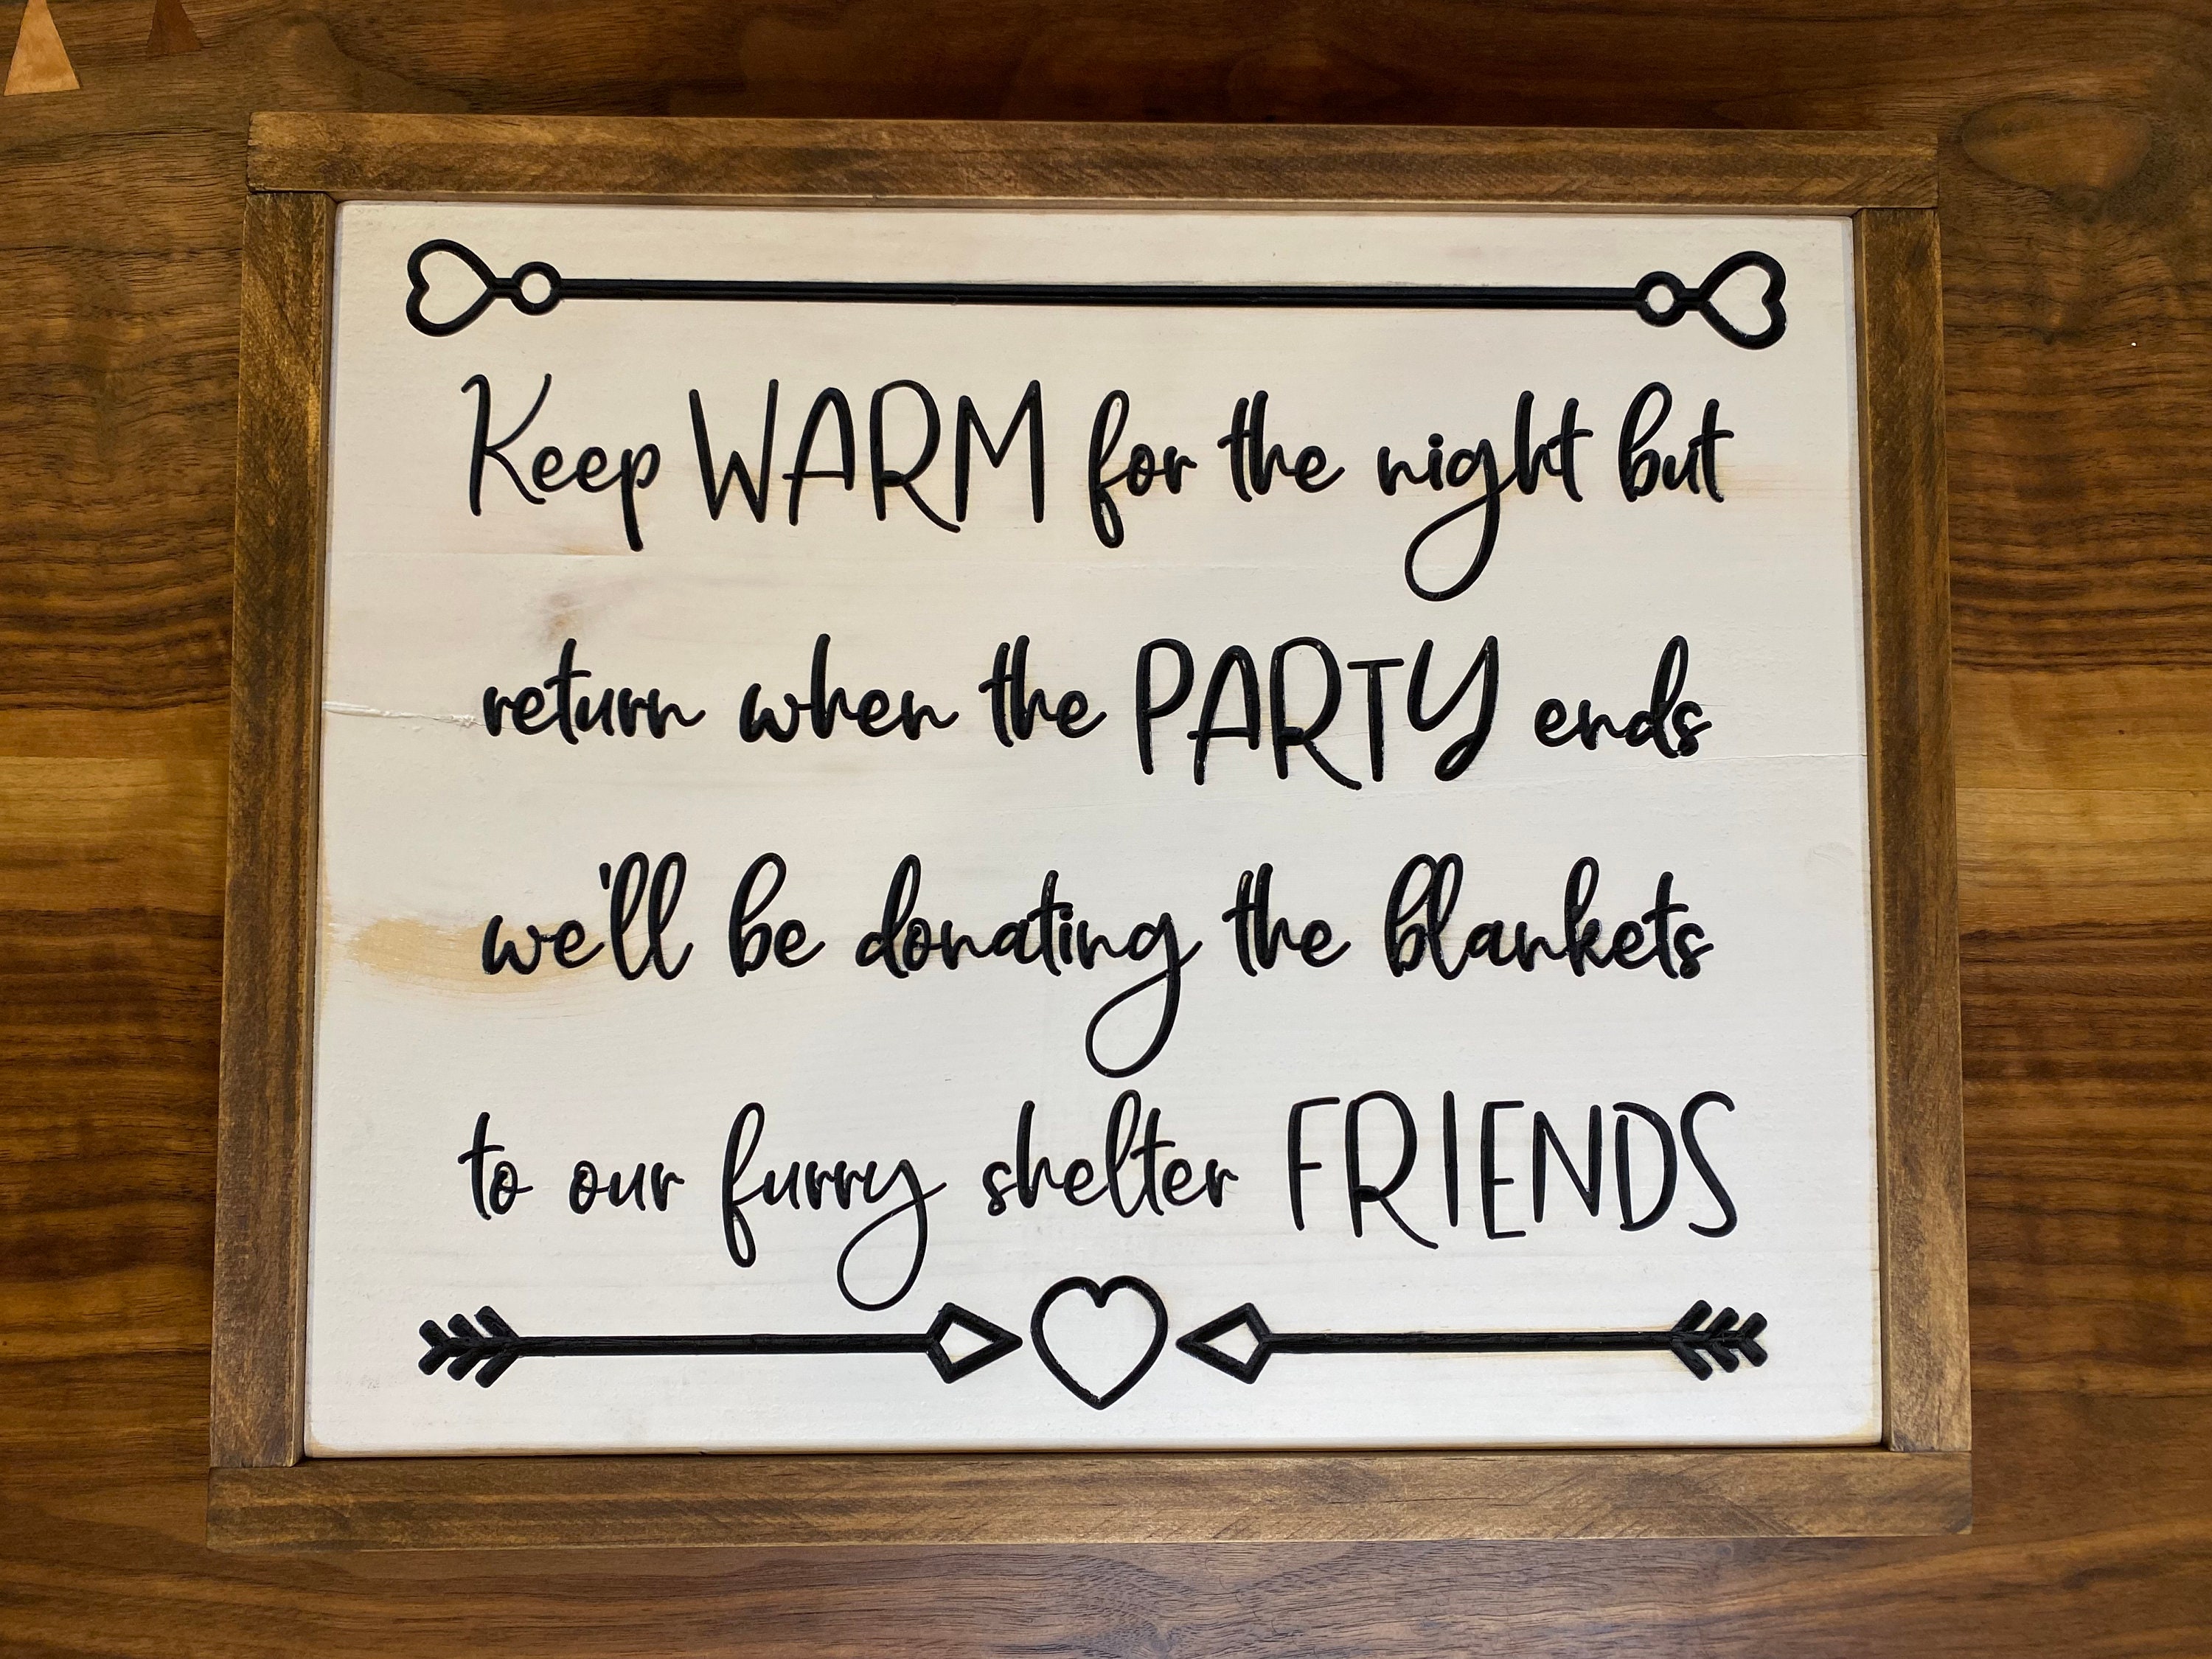 Keep WARM for the night but
return when the PARTY ends
we'll be donating the blankets
to our furry shelter FRIENDS